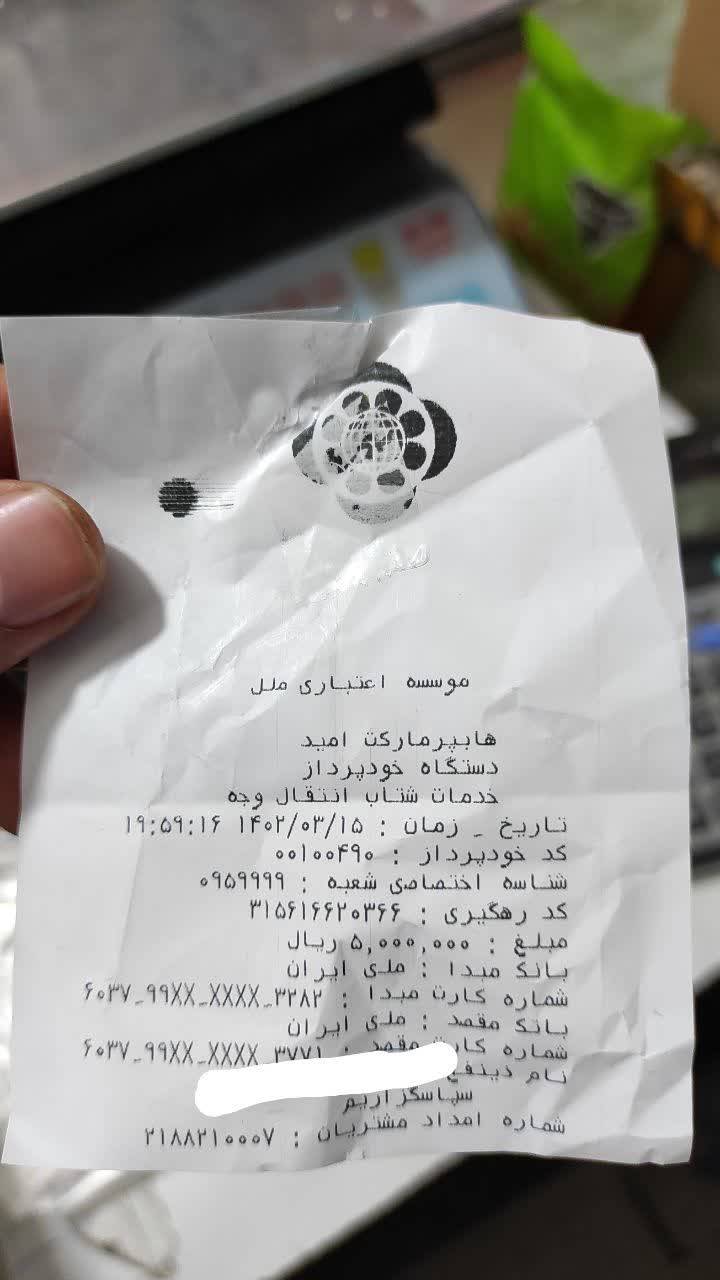 موسسه اعتباری ملل
هایپرمارکت امید
دستگاه خودپرداز
خدمات شتاب انتقال وجه
تاریخ - زمان : ۱۴۰۲/۰۳/۱۵ ۱۹:۵۹:۱۶
کد خودپرداز : ۰۰۱۰۰۴۹۰
شناسه اختصاصی شعبه : ۰۹۵۹۹۹۹
کد رهگیری : ۳۱۵۶۱۶۶۲۰۳۶۶
مبلغ : ۵,۰۰۰,۰۰۰ ریال
بانک مبدا : ملی ایران
شماره کارت مبدا : ۶۰۳۷-۹۹XX-XXXX-۳۲۸۲
بانک مقصد : ملی ایران
شماره کارت مقصد : ۶۰۳۷-۹۹XX-XXXX-۳۷۷۱
نام ذینفع
سپاسگزاریم
شماره امداد مشتریان : ۲۱۸۸۲۱۰۰۰۷